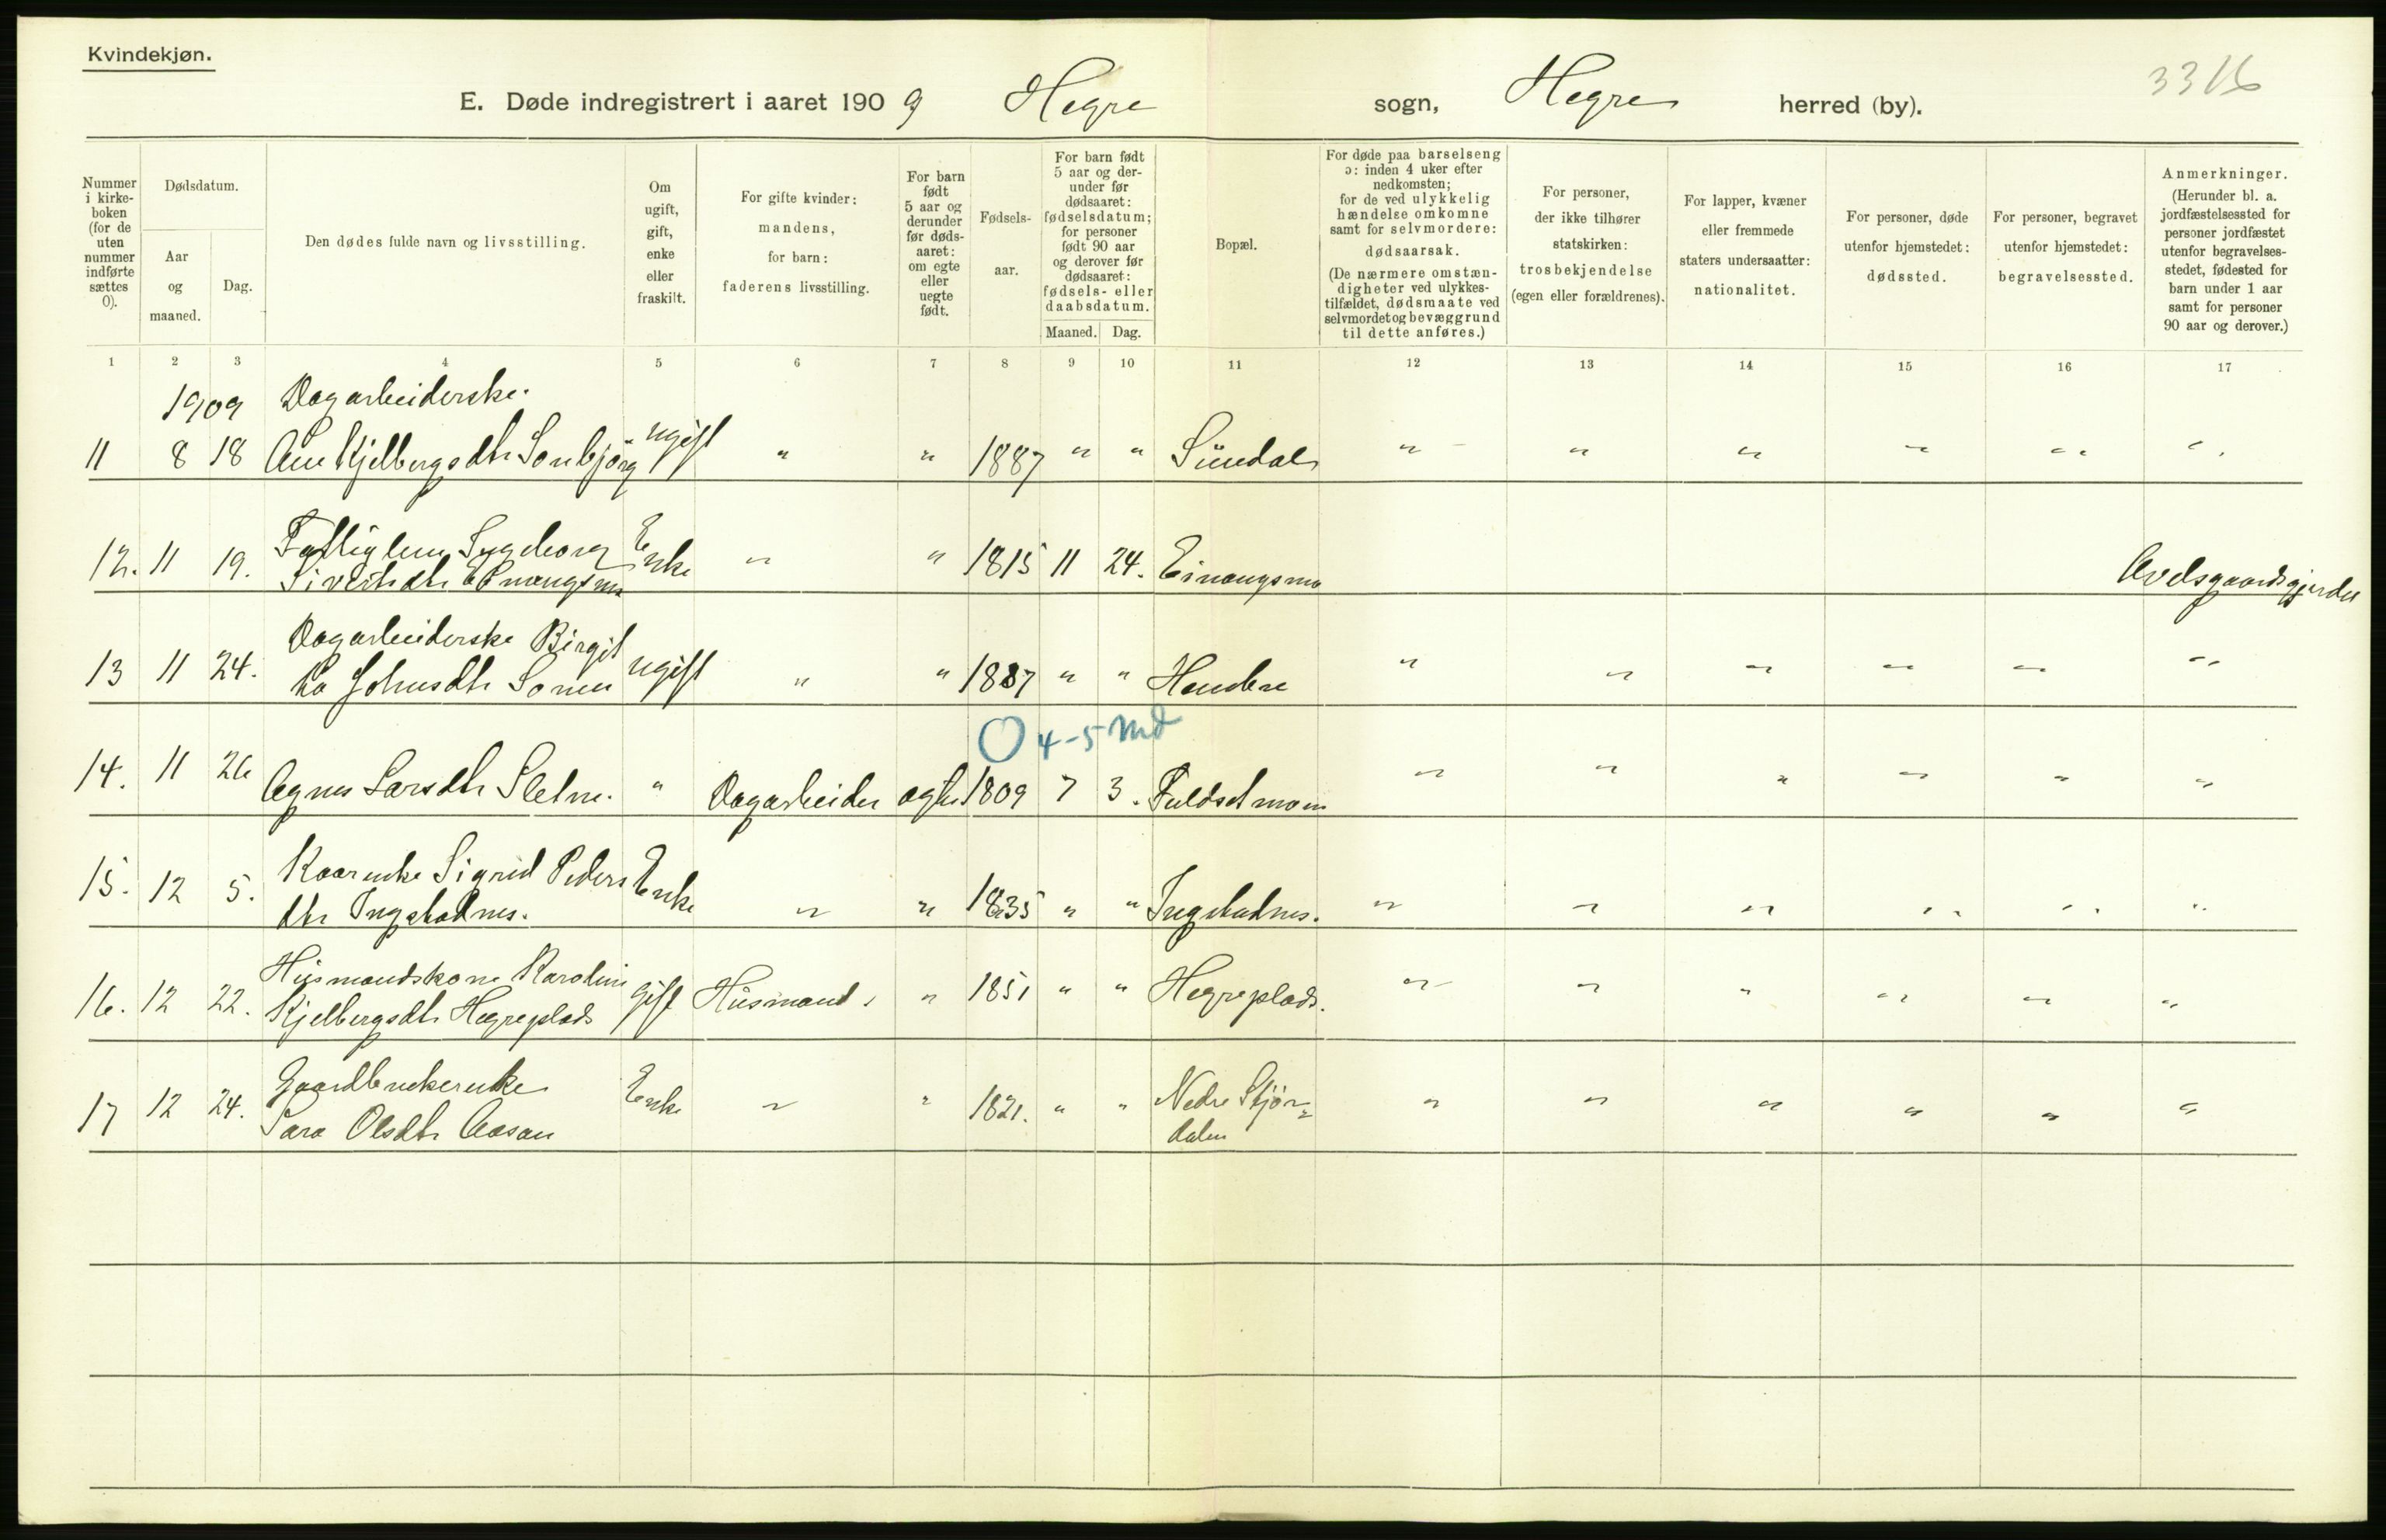 Kvindekjøn.
3316
E. Døde indregistrert i aaret 1909 Hegre sogn, Hegre herred (by).
Nummer i kirke-boken (for de uten nummer indførte sættes 0).
Dødsdatum.
Aar og maaned.
Dag.
Den dødes fulde navn og livsstilling.
Om ugift, gift, enke eller fraskilt.
For gifte kvinder: mandens, for barn: faderens livsstilling.
For barn født 5 aar og derunder før døds-aaret: om egte eller uegte født.
Fødsels-aar.
For barn født 5 aar og der-under før dødsaaret: fødselsdatum; for personer født 90 aar og derover før dødsaaret: fødsels- eller daabsdatum.
Maaned. Dag.
Bopæl.
For døde paa barselseng ɔ: inden 4 uker efter nedkomsten; for de ved ulykkelig hændelse omkomne samt for selvmordere: dødsaarsak. (De nærmere omstæn-digheter ved ulykkes-tilfældet, dødsmaate ved selvmordet og bevæggrund til dette anføres.)
For personer, der ikke tilhører statskirken: trosbekjendelse (egen eller forældrenes).
For lapper, kvæner eller fremmede staters undersaatter: nationalitet.
For personer, døde utenfor hjemstedet: dødssted.
For personer, begravet utenfor hjemstedet: begravelsessted.
Anmerkninger. (Herunder bl. a. jordfæstelsessted for personer jordfæstet utenfor begravelses-stedet, fødested for barn under 1 aar samt for personer 90 aar og derover.)
1 2 3 4 5 6 7 8 9 10 11 12 13 14 15 16 17
1909 Dagarbeiderske.
11 8 18 Ane Kjelbergsdtr Sonbjörg ugift " " 1887 " " Sundal " " " " " "
Fattiglem Ingeborg
12. 11 19. Sivertsdtr Einangsmo Enke " " 1815 11 24. Einangsmo Avelsgaardsgjerdet
Dagarbeiderske Birgit
13 11 24. ta Johnsdtr Sonen ugift " " 1887 " " Hembre " " " " " "
O 4-5 Md
14. 11 26 Agnes Larsdtr Sletne. " Dagarbeider ægte 1809 7 3. Fuldsetmoen " " " " " "
Kaarenke Sigrid Peders
15. 12 5. dtr Ingstadnes. Enke " " 1835 " " Ingstadnes. " " " " " "
Husmandskone Karoline
16. 12 22. Kjelbergsdtr Hegreplads gift Husmand " 1851 " " Hegreplads. " " " " " "
Gaardbrukerenke
17 12 24. Sara Olsdtr Aasan Enke " " 1821. " " Nedre Stjör=
dalen " " " " " "